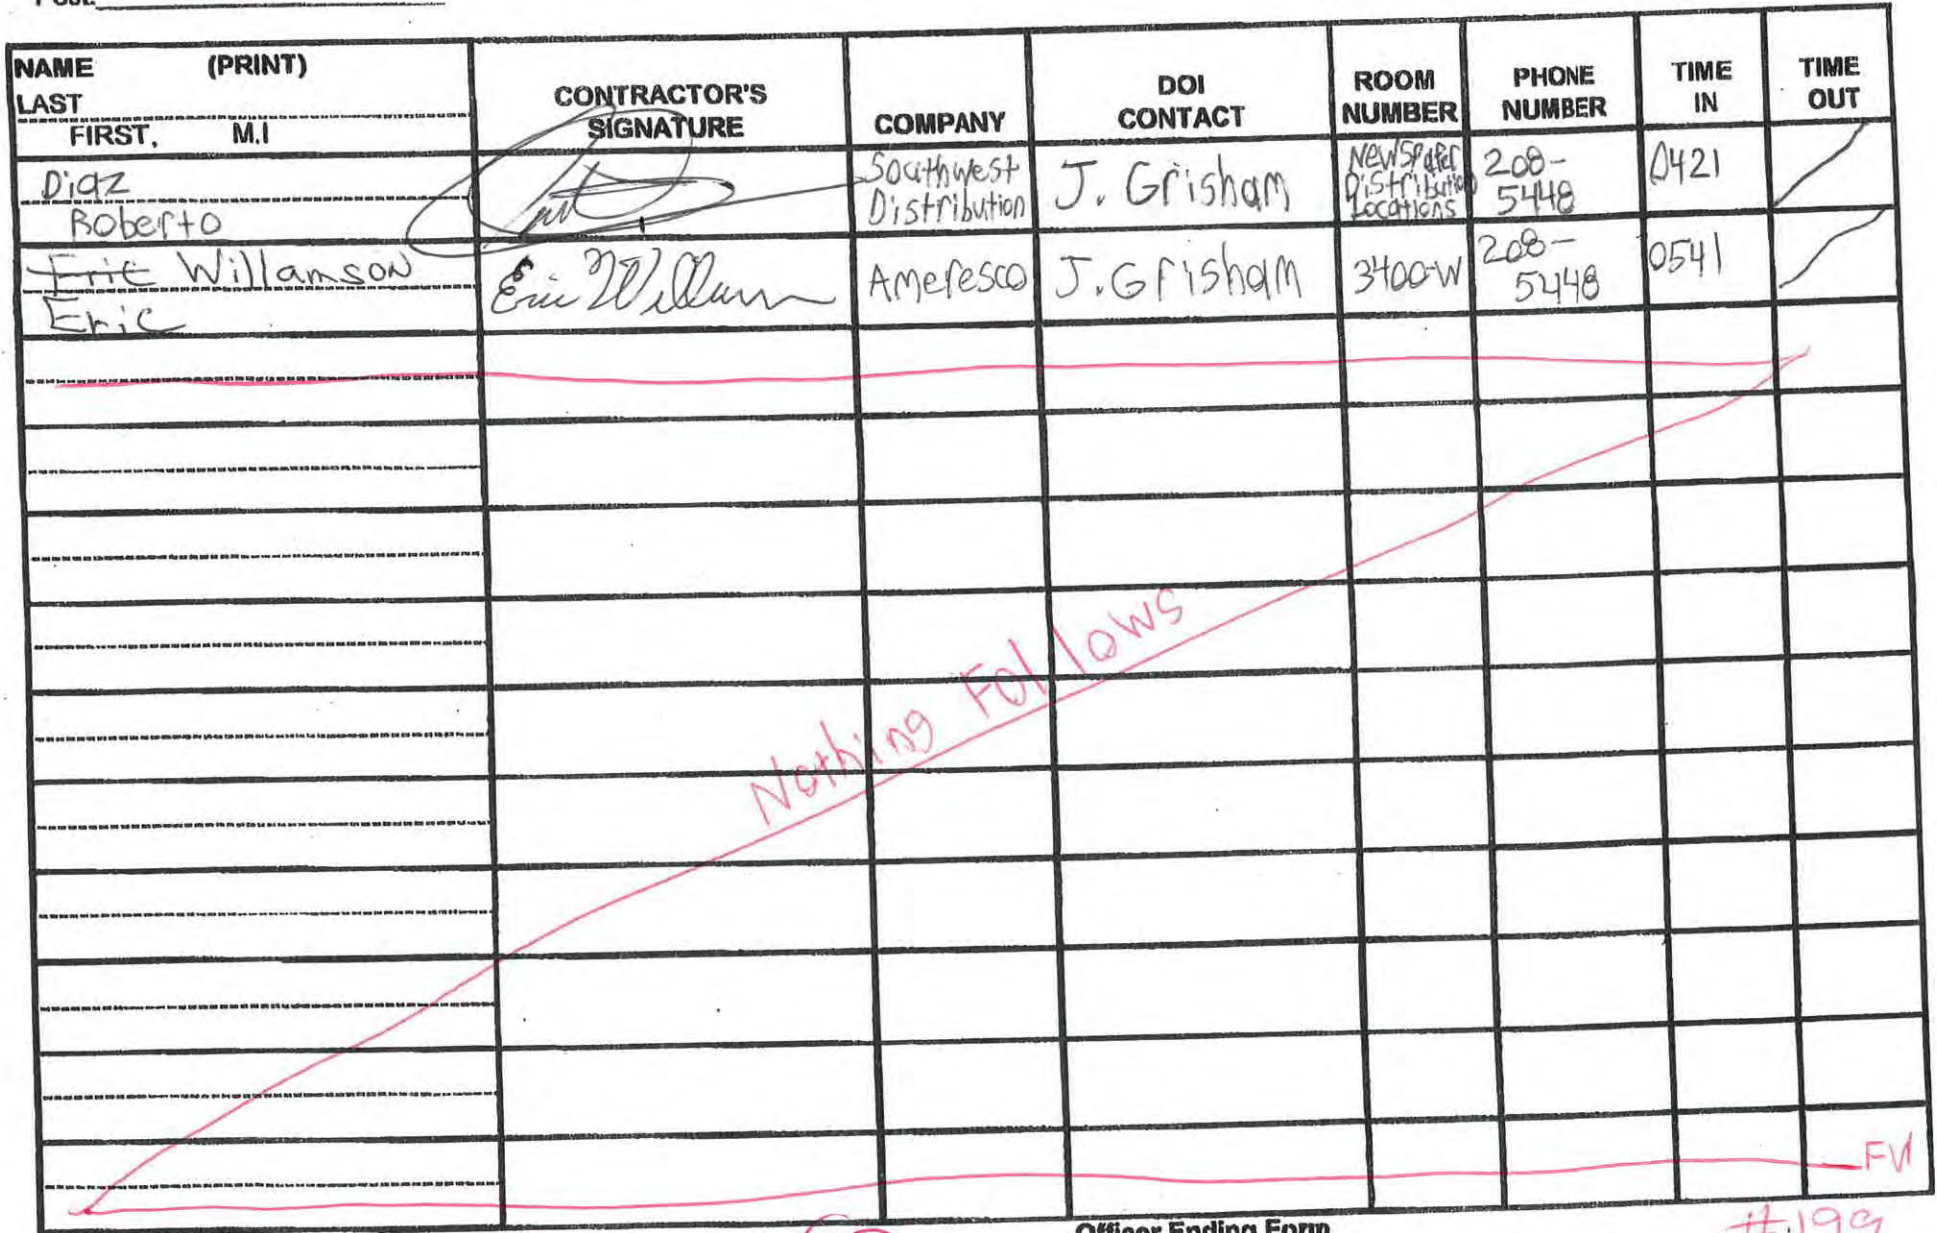 NAME (PRINT)
LAST
FIRST, M.I
CONTRACTOR'S
SIGNATURE
COMPANY
DOI
CONTACT
ROOM
NUMBER
PHONE
NUMBER
TIME
IN
TIME
OUT
Diaz
Roberto
Southwest
Distribution
J. Grisham
Newspaper
Distribution
Locations
208-
5448
0421
Eric Willamson
Eric
Eric
Ameresco
J. Grisham
3400-W
208-
5448
0541
Nothing Follows
Officer Ending Form
#199